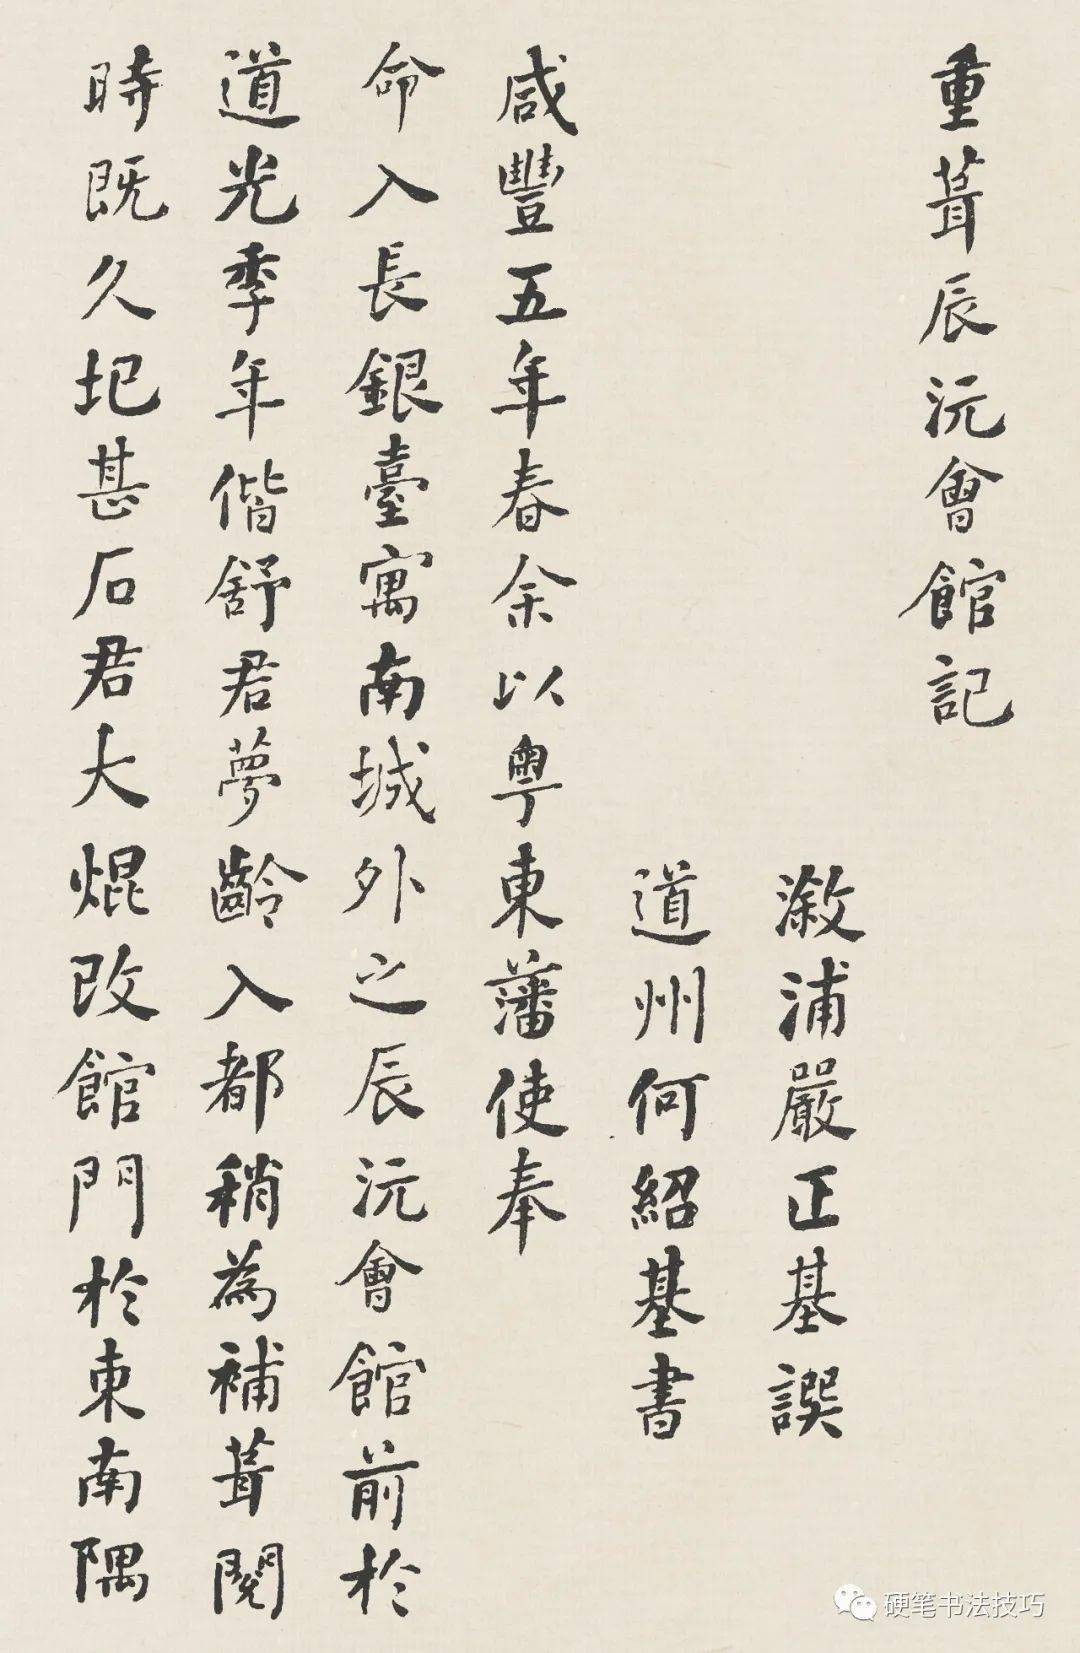 重葺辰沅會館記
漵浦嚴正基譔
道州何紹基書
咸豐五年春余以粵東藩使奉
命入長銀臺寓南城外之辰沅會館前於
道光季年偕舒君夢齡入都稍為補葺閱
時既久圮甚石君大焜改館門於東南隅
硬笔书法技巧